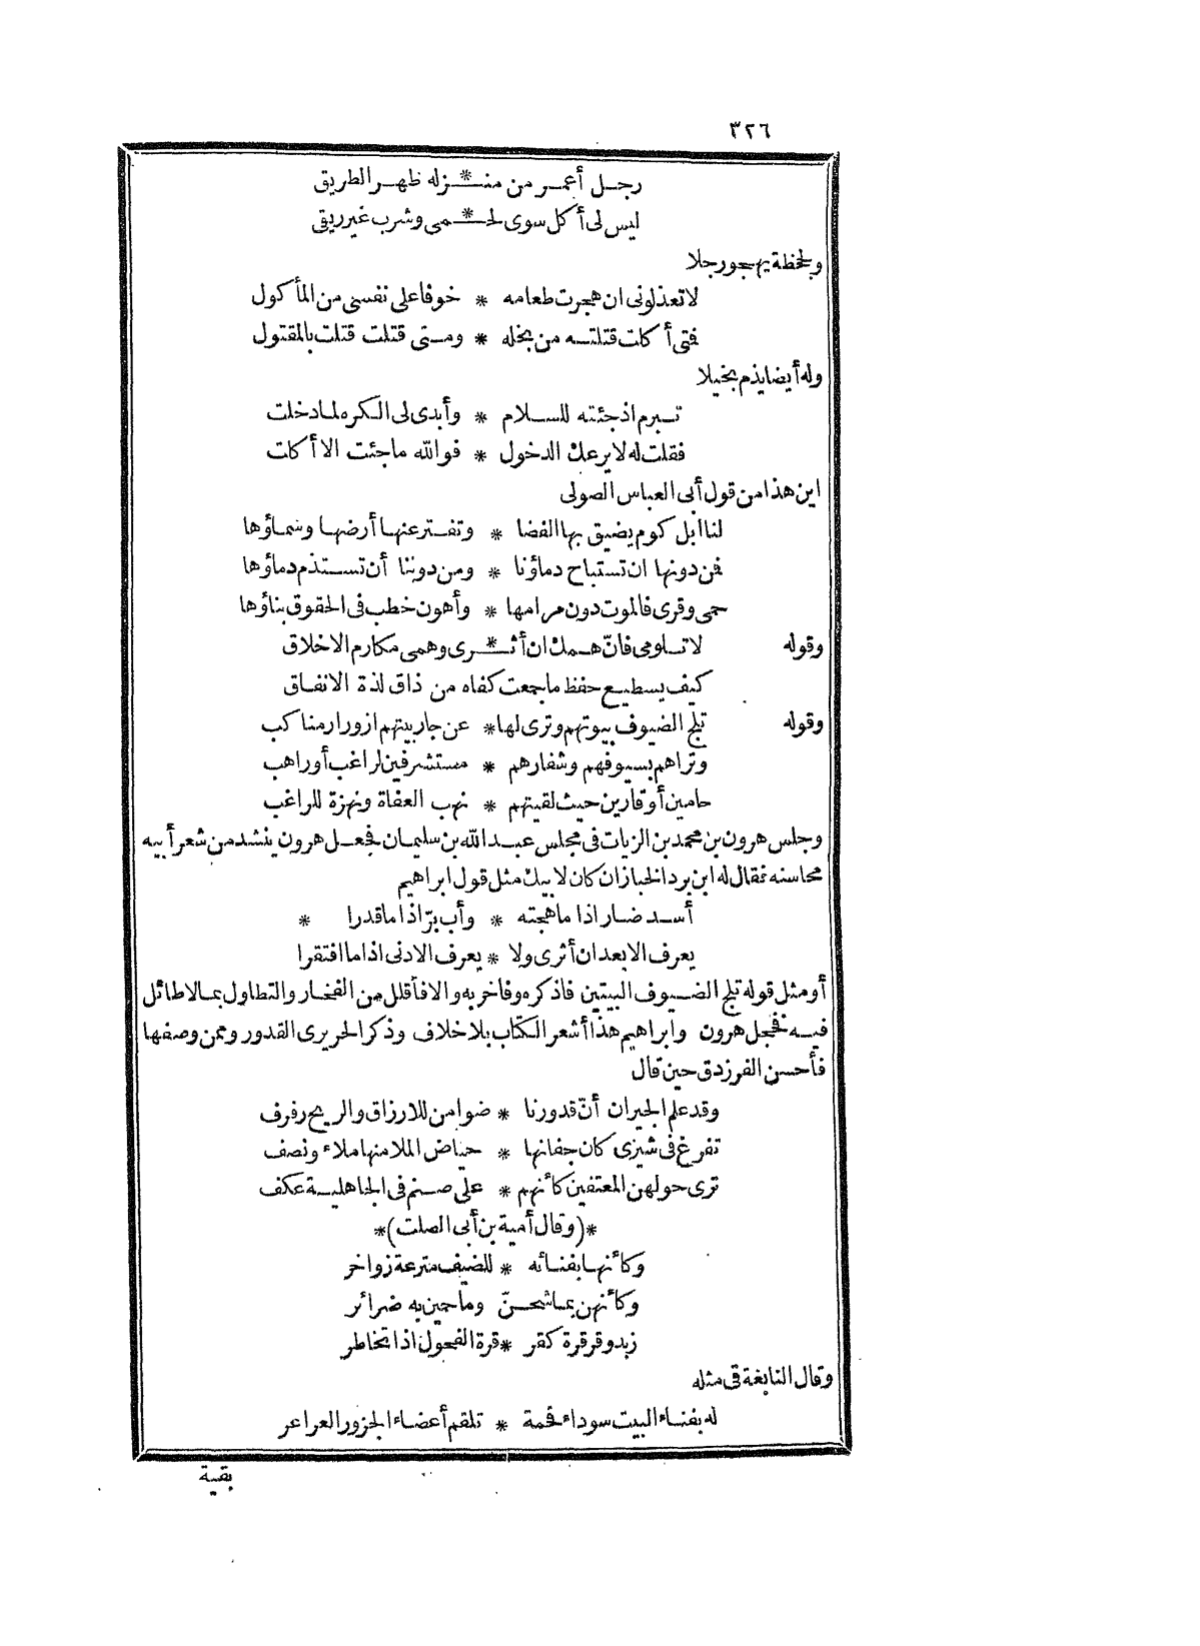 ٣٢٦
رجل أعمر من منـ * ـزله ظهر الطريق
ليس لى أكل سوى لحـ * ـمى وشرب غير ريقى
ولجحظة يهجو رجلا
لا تعذلونى ان هجرت طعامه * خوفا على نفسى من المأكول
فتى أكلت قتلته من بخله * ومتى قتلت قتلت بالمقتول
وله أيضا يذم بخيلا
تبرم اذ جئته للسلام * وأبدى لى الكره لما دخلت
فقلت له لا يرعك الدخول * فوالله ما جئت الا أكلت
اين هذا من قول أبى العباس الصولى
لنا ابل كوم يضيق بها الفضا * وتفتر عنها أرضها وسماؤها
فمن دونها ان تستباح دماؤنا * ومن دوننا أن تستذم دماؤها
حمى وقرى فالموت دون مرامها * وأهون خطب فى الحقوق بناؤها
وقوله لا تلومى فانّ همك ان أثـ * ـرى وهمى مكارم الاخلاق
كيف يسطيع حفظ ما جمعت كفاه من ذاق لذة الانفاق
وقوله تلج الضيوف بيوتهم وترى لها * عن جار بيتهم ازورار مناكب
وتراهم بسيوفهم وشفارهم * مستشرفين لراغب أوراهب
حامين أوقارين حيث لقيتهم * نهب العفاة ونهزة للراغب
وجلس هرون بن محمد بن الزيات فى مجلس عبد الله بن سليمان فجعل هرون ينشد من شعر أبيه
محاسنه فقال له ابن برد الخباز ان كان لابيك مثل قول ابراهيم
أسد ضار اذا ما هجته * وأب برّ اذا ما قدرا *
يعرف الابعد ان أثرى ولا * يعرف الادنى اذا ما افتقرا
أو مثل قوله تلج الضيوف البيتين فاذكره وفاخر به والا فأقلل من الفخار والتطاول بما لا طائل
فيه فخجل هرون وابراهيم هذا أشعر الكتاب بلا خلاف وذكر الحريرى القدور وممن وصفها
فأحسن الفرزدق حين قال
وقد علم الجيران أنّ قدورنا * ضوامن للارزاق والريح رفرف
تفرغ فى شيزى كان جفانها * حياض الملا منها ملاء ونصف
ترى حولهن المعتفين كأنهم * على صنم فى الجاهلية عكف
*(وقال أمية بن أبى الصلت)*
وكأنها بفنائه * للضيف مترعة زواخر
وكأنهن بما شحنّ وما حمين به ضرائر
زبد وقرقرة كقر * قرة الفحول اذا تخاطر
وقال النابغة فى مثله
له بفناء البيت سوداء فحمة * تلقم أعضاء الجزور العراعر
بقية